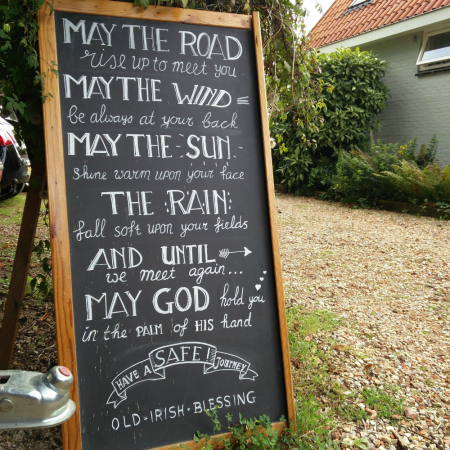 MAY THE ROAD
rise up to meet you
MAY THE WIND
be always at your back
MAY THE SUN
shine warm upon your face
THE RAIN
fall soft upon your fields
AND UNTIL
we meet again...
MAY GOD hold you
in the PALM of HIS hand
HAVE A SAFE! JOURNEY
OLD-IRISH-BLESSING